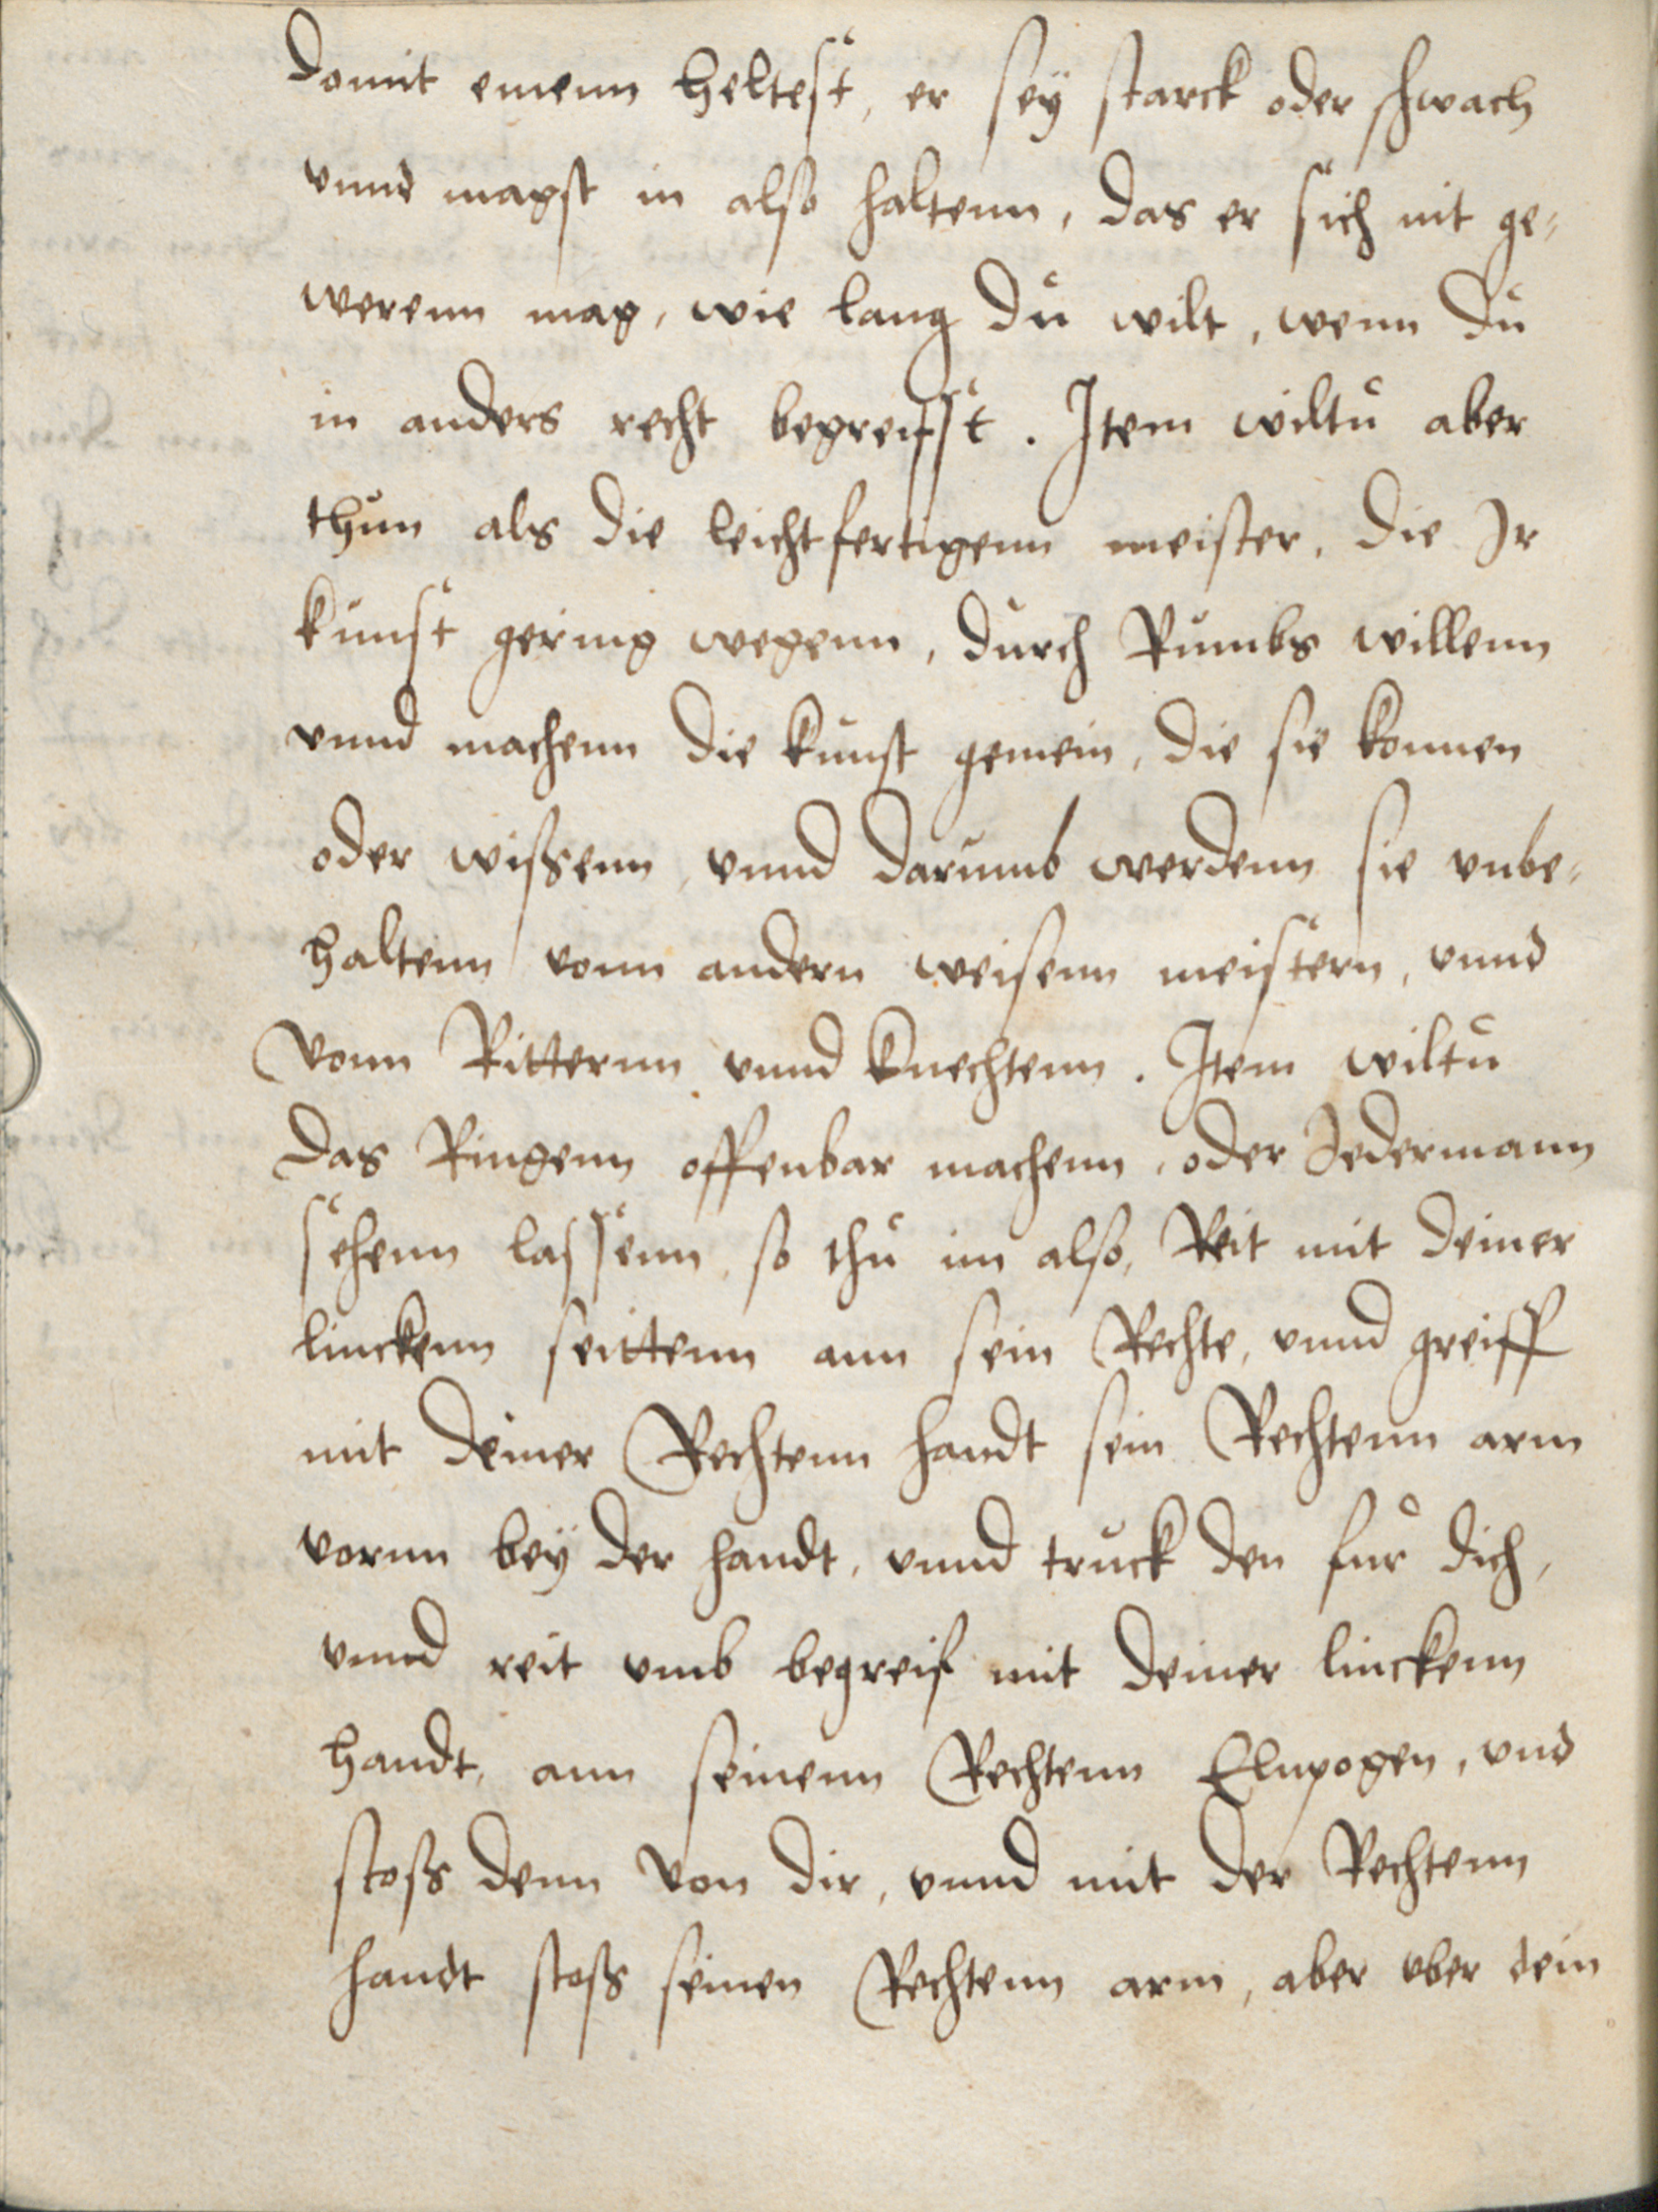 domit einenn heltest, er seÿ starck oder schwach
vnnd magst in also haltenn, das er sich nit ge¬
werenn mag, wie lang du wilt, wenn du
in anders recht begreiffst. Item wiltu aber
thun als die leichtfertigenn meister, die Ir
kunst gering wegenn, durch Rumbs willenn
vnnd machenn die kunst gemein, die sie konnen
oder wißenn, vnnd darumb werdenn sie vnbe¬
haltenn vonn andern weisenn meistern, vnnd
vonn Ritternn vnnd knechtenn. Item wiltu
das Ringenn offenbar machenn, oder Jedermann
sehenn lassenn, so thu im also, Reit mit deiner
linckenn seittenn ann sein Rechte, vnnd greiff
mit deiner Rechtenn handt sein Rechtenn arm
vornn beÿ der handt, vnnd truck den fur dich,
vnnd reit vmb begreif mit deiner linckenn
handt, ann seinenn Rechtenn Elnpogen, vnd
stoß denn von dir, vnnd mit der Rechtenn
handt stoß seinen Rechtenn arm, aber vber dein